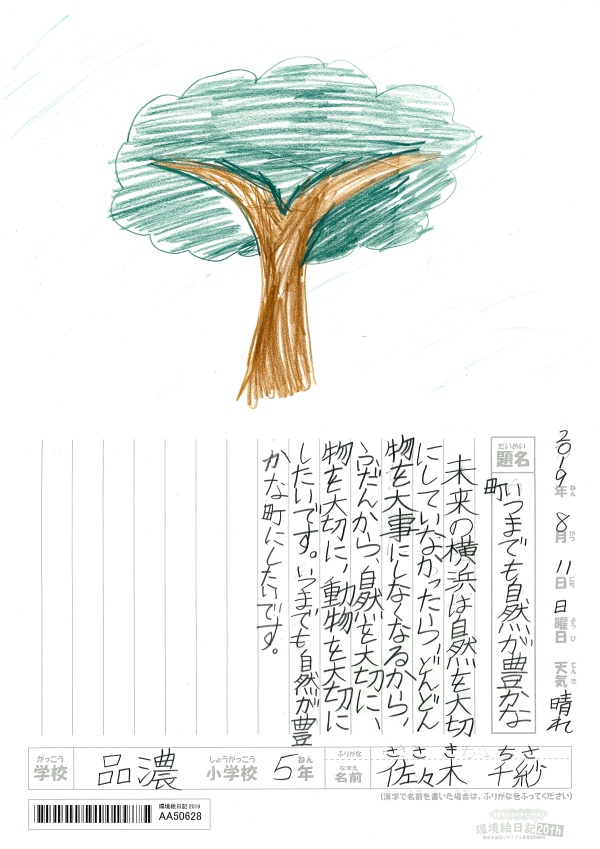 2019年ねん 8月がつ 11日にち 日曜日ようび 天気てんき 晴れ
だいめい
題名
いつまでも自然が豊かな
町
未来の横浜は自然を大切
にしていなかったら、どんどん
物を大事にしなくなるから、
ふだんから、自然を大切に、
物を大切に、動物を大切に
したいです。いつまでも自然が豊
かな町にしたいです。
がっこう しょうがっこう ねん ふりがな ささき ちさ
学校 品濃 小学校 5年 なまえ 名前 佐々木 千紗
(漢字で名前を書いた場合は、ふりがなをふってください)
環境絵日記 2019
AA50628
環境絵日記 20th